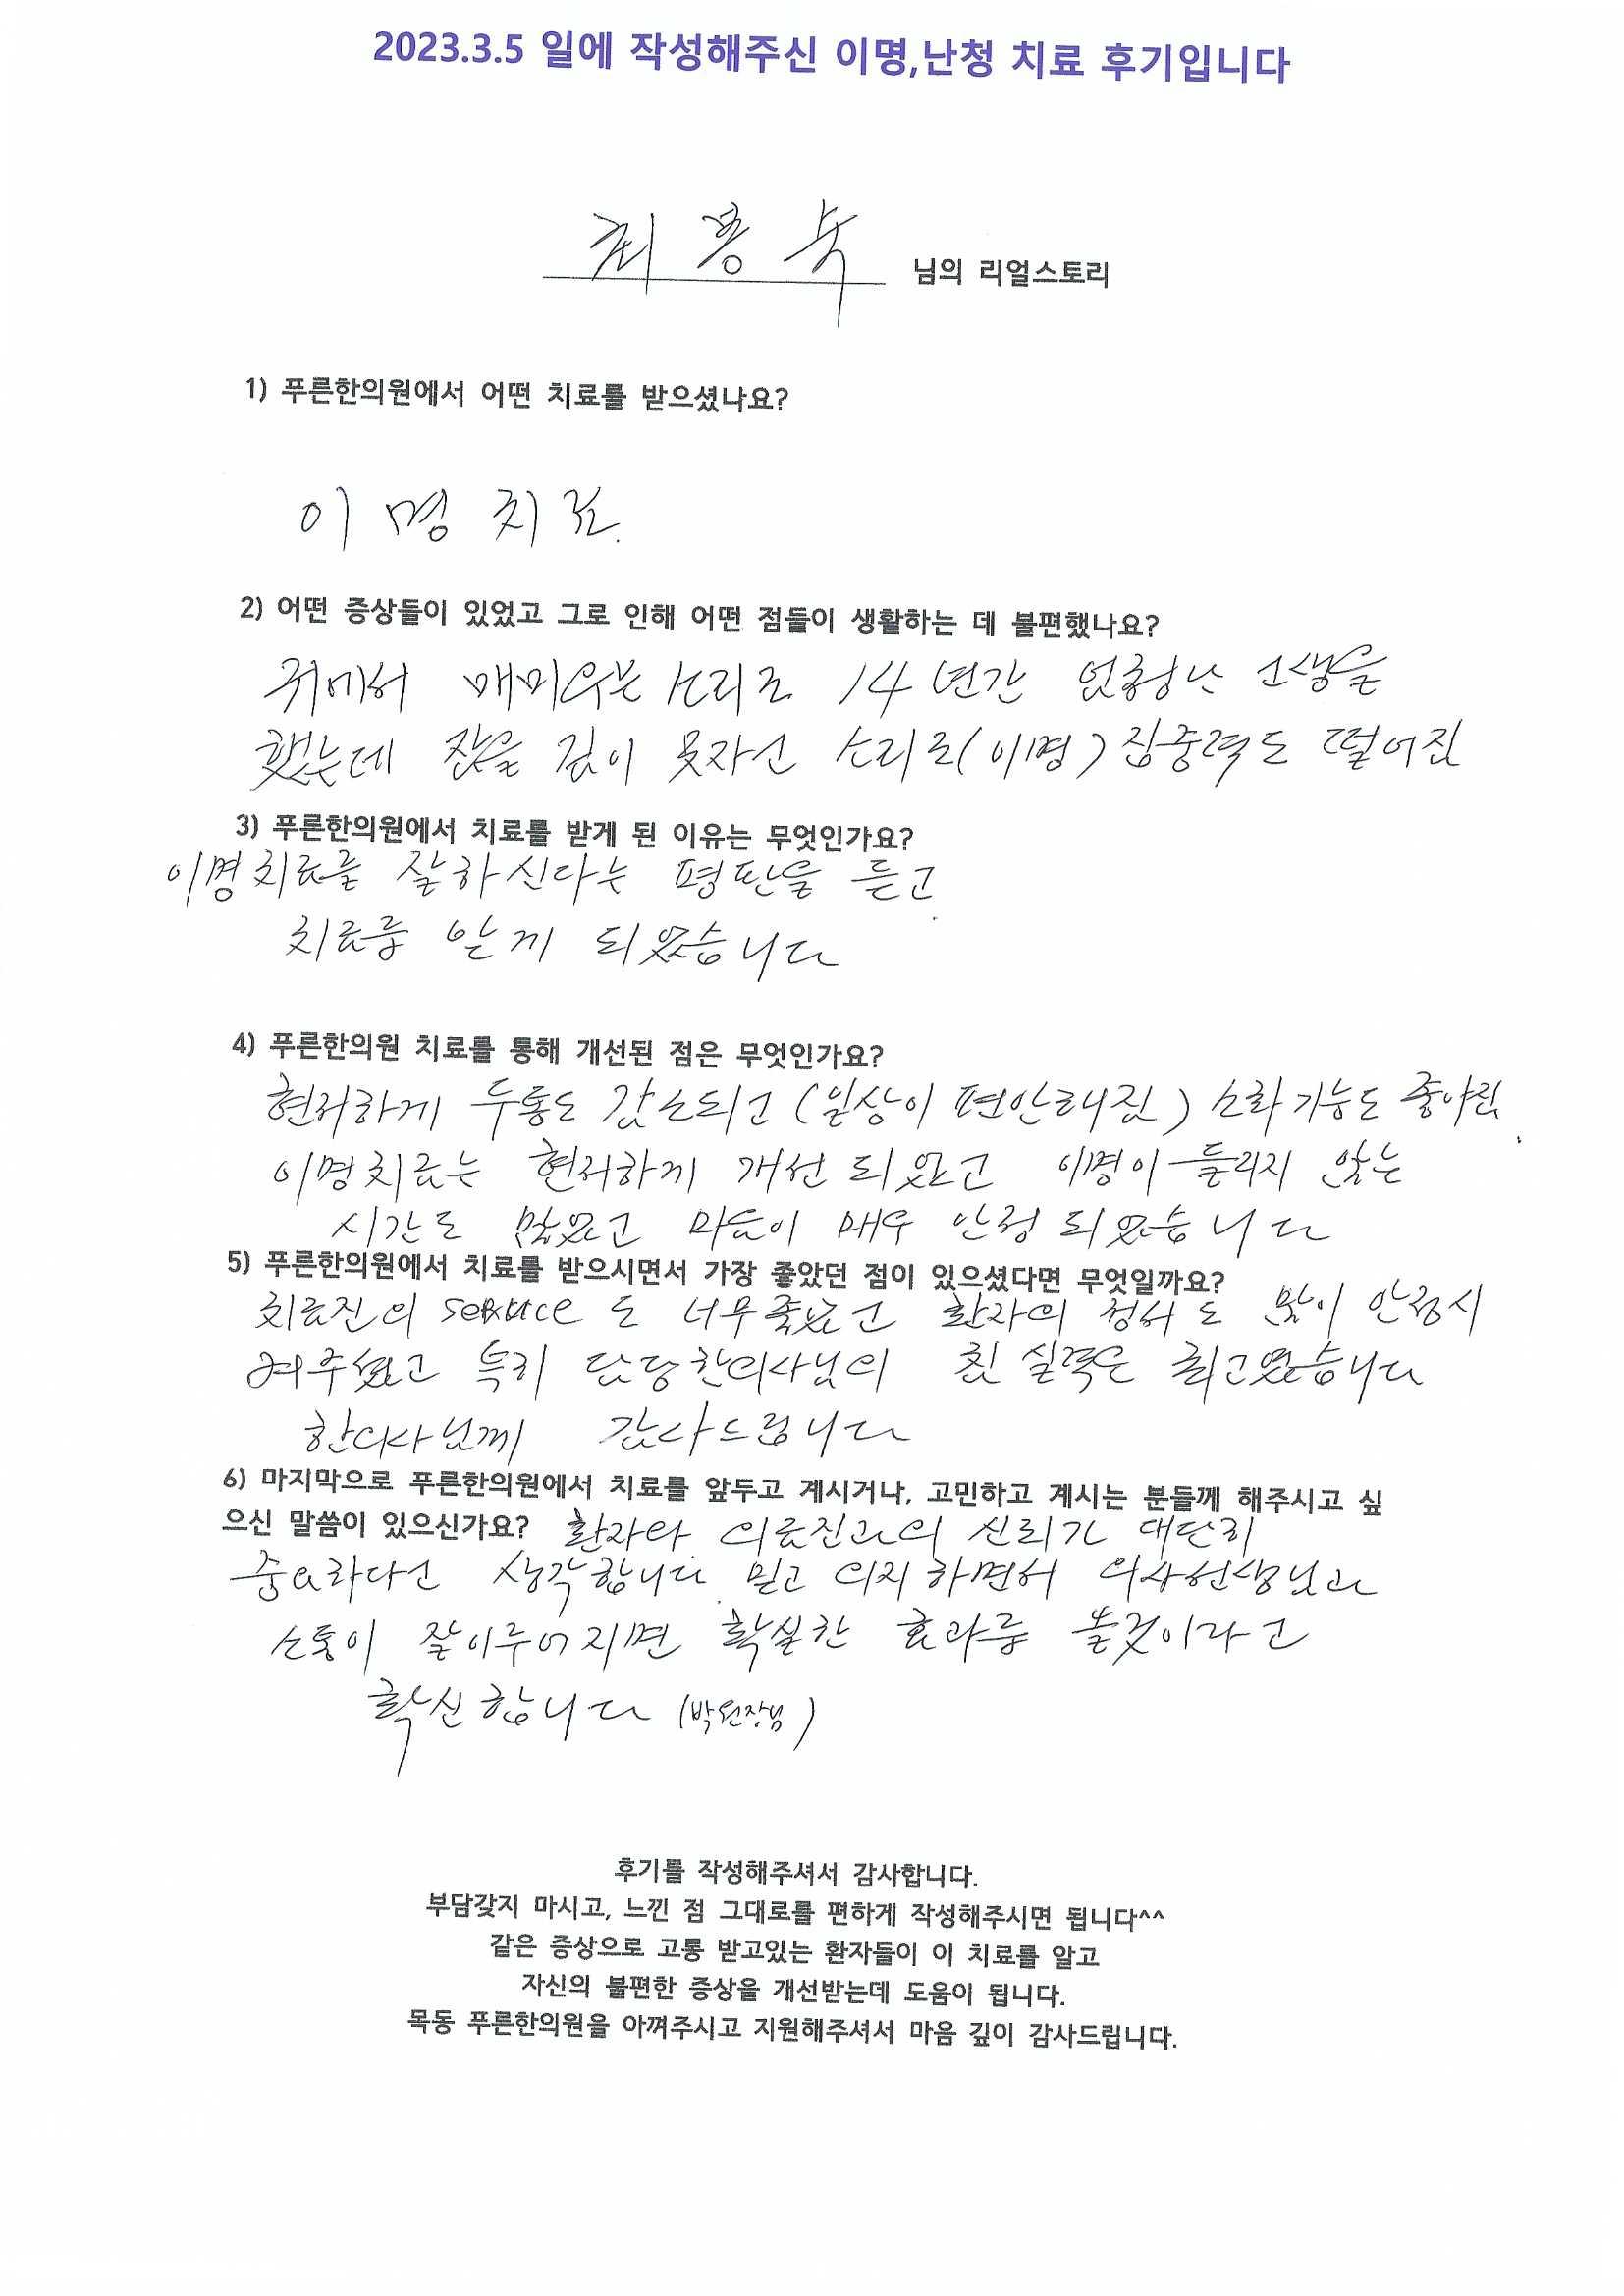 2023.3.5 일에 작성해주신 이명,난청 치료 후기입니다
최 님의 리얼스토리
1) 푸른한의원에서 어떤 치료를 받으셨나요?
이명치료.
2) 어떤 증상들이 있었고 그로 인해 어떤 점들이 생활하는 데 불편했나요?
귀에서 매미우는 소리로 14년간 엄청난 고생을
했는데 잠을 깊이 못자고 소리로(이명) 집중력도 떨어짐
3) 푸른한의원에서 치료를 받게 된 이유는 무엇인가요?
이명치료를 잘하신다는 평판을 듣고
치료를 받게 되었습니다
4) 푸른한의원 치료를 통해 개선된 점은 무엇인가요?
현저하게 두통도 감소되고 (일상이 편안해짐) 소화기능도 좋아짐.
이명치료는 현저하게 개선 되었고 이명이 들리지 않는
시간도 많았고 마음이 매우 안정 되었습니다
5) 푸른한의원에서 치료를 받으시면서 가장 좋았던 점이 있으셨다면 무엇일까요?
치료진의 service 도 너무좋았고 환자의 정서도 많이 안정시
여주셨고 특히 담당한의사님의 침 실력은 최고였습니다
한의사님께 감사드립니다
6) 마지막으로 푸른한의원에서 치료를 앞두고 계시거나, 고민하고 계시는 분들께 해주시고 싶
으신 말씀이 있으신가요? 환자와 의료진과의 신뢰가 대단히
중요하다고 생각합니다 믿고 의지하면서 의사선생님과
소통이 잘이루어지면 확실한 효과를 볼것이라고
확신합니다 (박원장님)
후기를 작성해주셔서 감사합니다.
부담갖지 마시고, 느낀 점 그대로를 편하게 작성해주시면 됩니다^^
같은 증상으로 고통 받고있는 환자들이 이 치료를 알고
자신의 불편한 증상을 개선받는데 도움이 됩니다.
목동 푸른한의원을 아껴주시고 지원해주셔서 마음 깊이 감사드립니다.